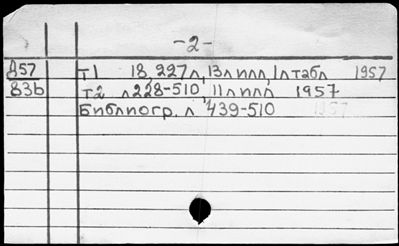 -2-
857 т1 18, 227л, 13л илл, 1л табл 1957
83b т2 л228-510, 11л илл 1957
Библиогр. л 439-510 1957